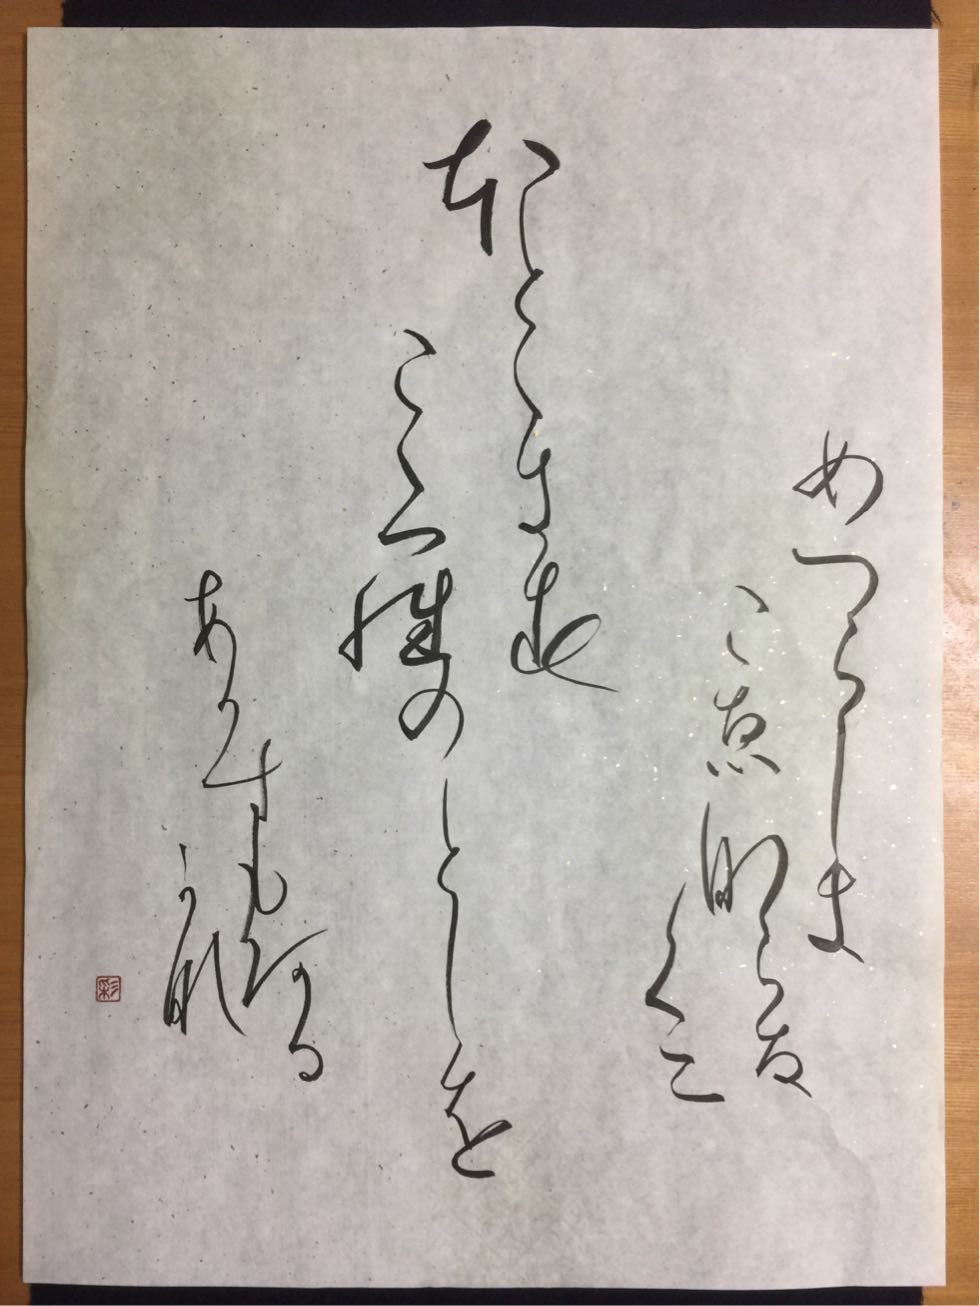 めつらしき
こゑ那らな
くに
ほとゝきす
こゝらのとしを
あかすもある
可那
彩